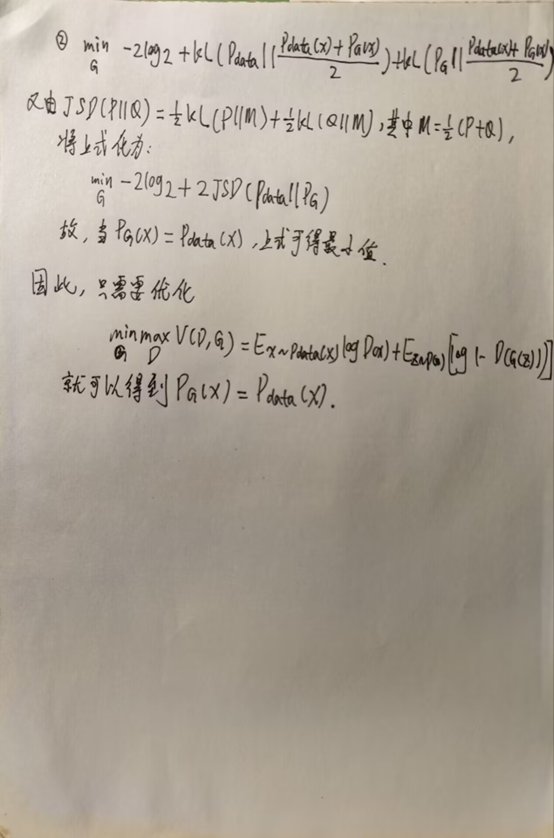 ② min_G -2log2 + KL(Pdata||(Pdata(x)+PG(x))/2)+KL(PG||(Pdata(x)+PG(x))/2)
又由JSD(P||Q)=½KL(P||M)+½KL(Q||M),其中M=½(P+Q),
将上式化为:
min_G -2log2+2JSD(Pdata||PG)
故,当PG(X)=Pdata(X),上式可得最小值.
因此,只需要优化
min_G max_D V(D,G)=E_{x~Pdata(x)} log D(x)+E_{z~P(z)}[log 1-D(G(z))]
就可以得到PG(X)=Pdata(X).